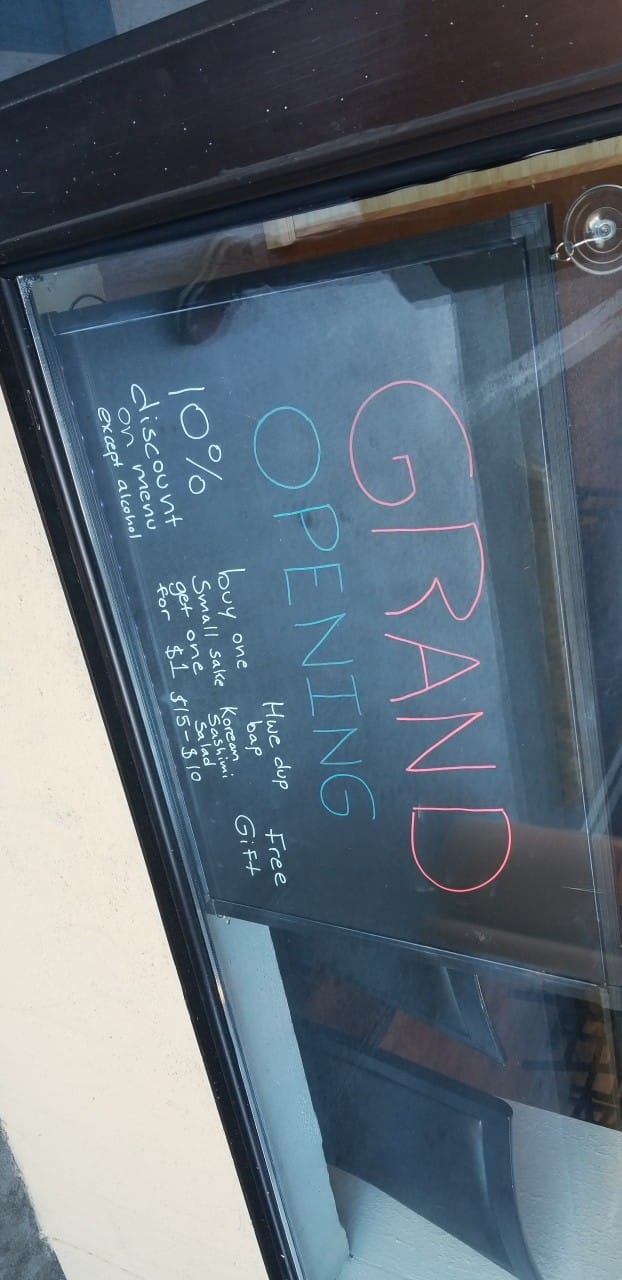 GRAND
OPENING
10%
discount
on menu
except alcohol
buy one
small sake
get one
for $1
Hwe dup
bap
Korean
Sashimi
Salad
$15-$10
Free
Gift